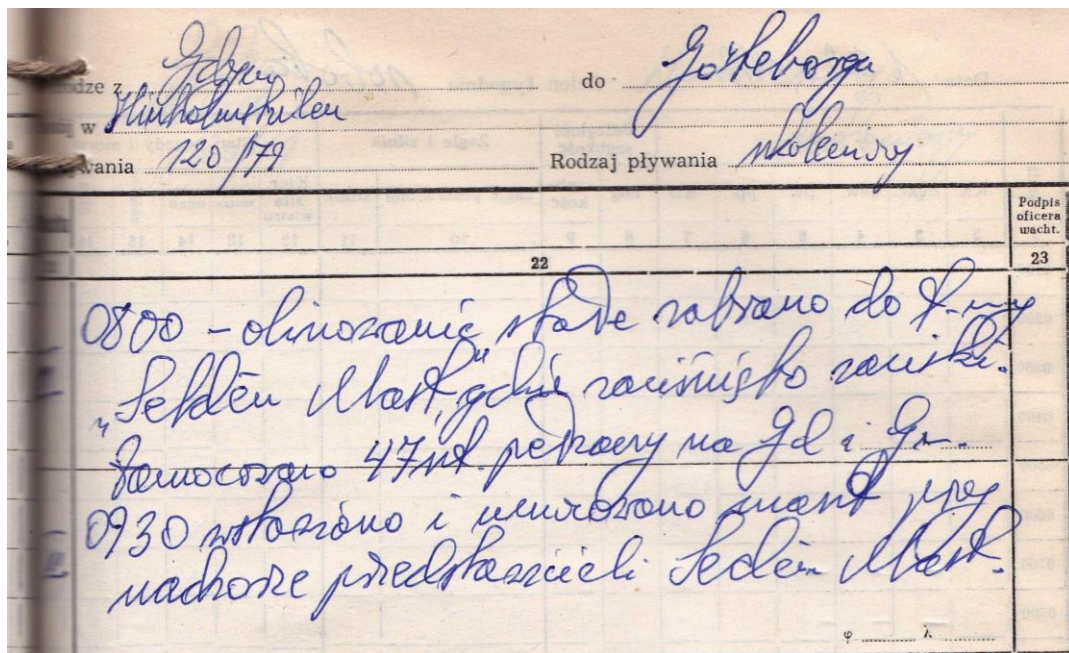 odze z Gdyni do Göteborga
j w Hinholmskilen
wania 120/79 Rodzaj pływania szkoleniowy
Podpis oficera wacht.
22 23
0800 – olinowanie stałe zabrano do f-my
„Seldén Mast," gdzie zaciśnięto zaciski.
Zamocowano 47 szt. pełzaczy na Gd i Gn.
0930 wstawiono i umocowano maszt przy
nadzorze przedstawicieli Seldén Mast.
φ λ